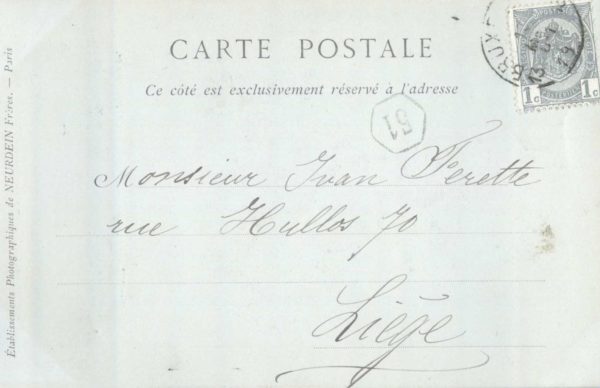 CARTE POSTALE
Ce côté est exclusivement réservé à l'adresse
51
Monsieur Ivan Ferette
rue Hullos 70
Liège
Établissements Photographiques de NEURDEIN Frères. — Paris
BRUX
1c 1c